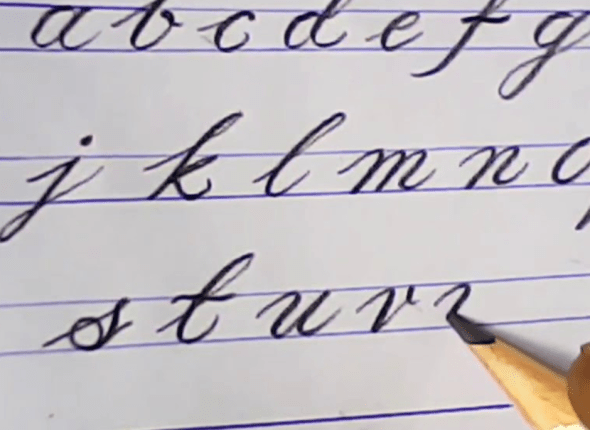 a b c d e f g
j k l m n
s t u v